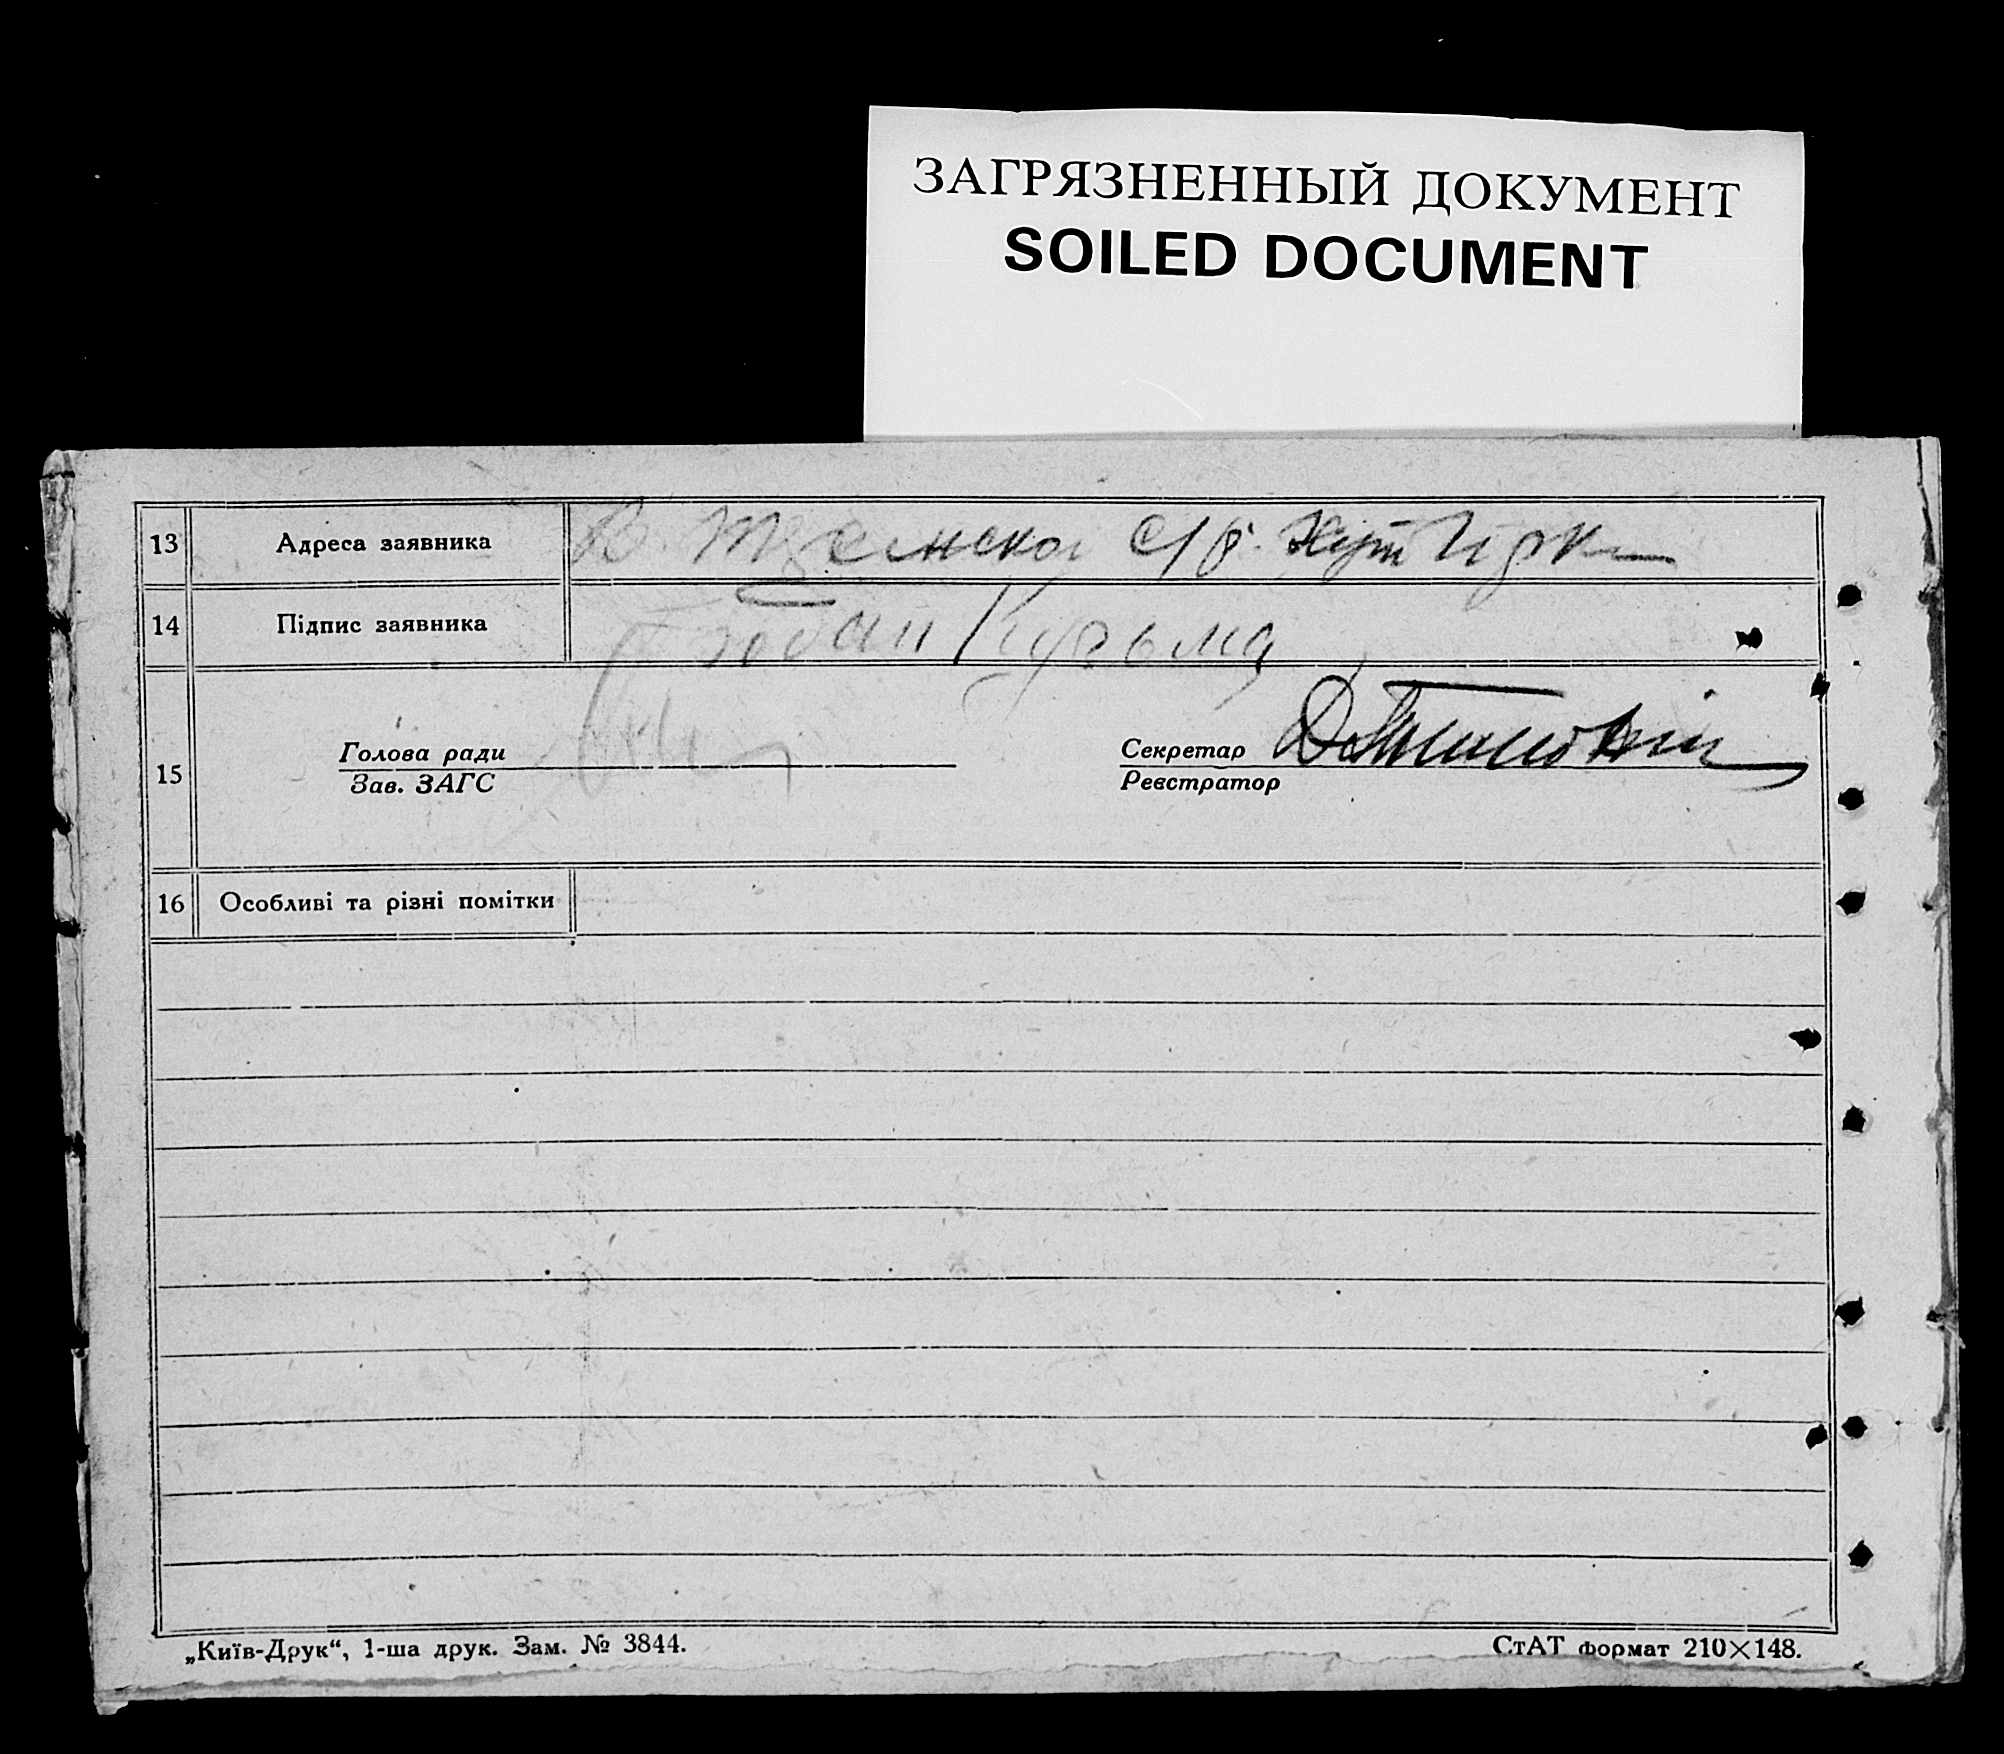 ЗАГРЯЗНЕННЫЙ ДОКУМЕНТ
SOILED DOCUMENT
13 Адреса заявника
14 Підпис заявника Кузьма
15 Голова ради
Зав. ЗАГС
Секретар
Реєстратор
16 Особливі та різні помітки
„Київ-Друк“, 1-ша друк. Зам. № 3844.
СтАТ формат 210×148.